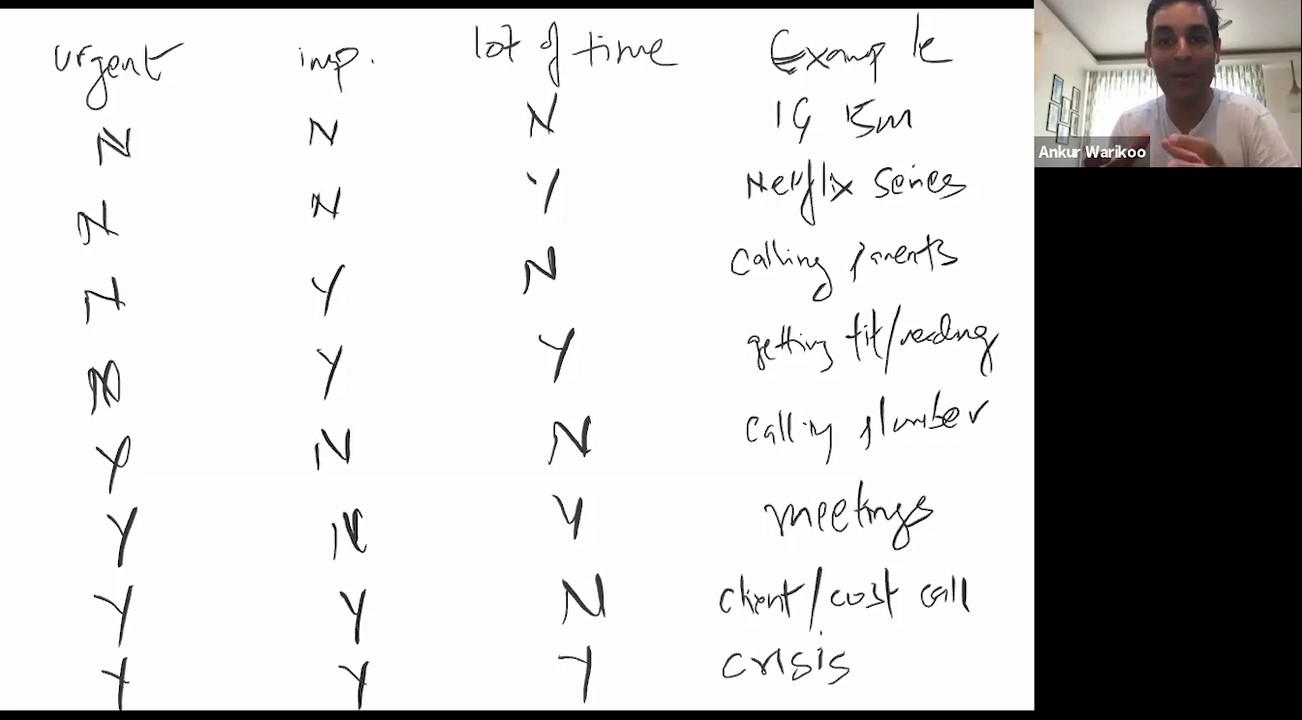 urgent imp. lot of time Example
N N N IG 15m
N N Y Netflix series
N Y N Calling parents
N Y Y getting fit/reading
Y N N Calling plumber
Y N Y meetings
Y Y N client/cust call
Y Y Y crisis
Ankur Warikoo